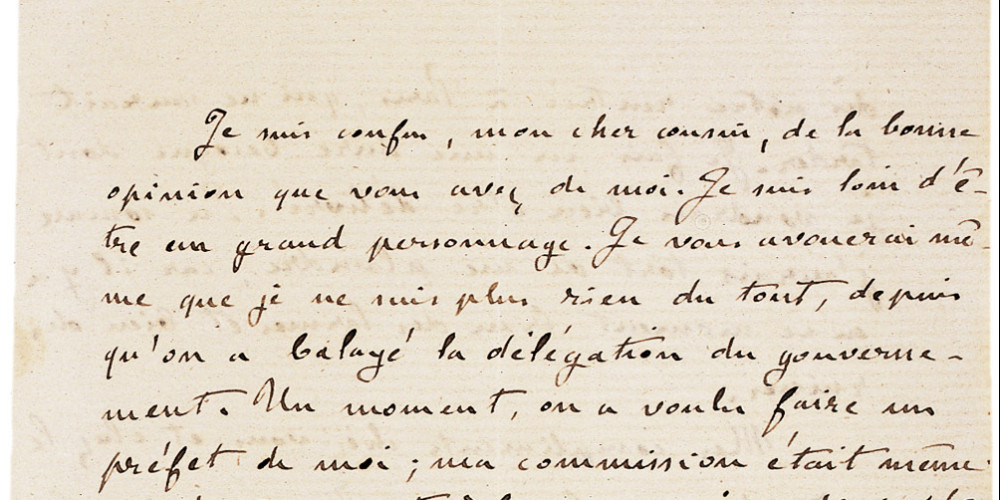 Je suis confus, mon cher cousin, de la bonne
opinion que vous avez de moi. Je suis loin d'ê-
tre un grand personnage. Je vous avouerai mê-
me que je ne suis plus rien du tout, depuis
qu'on a balayé la délégation du gouverne-
ment. Un moment, on a voulu faire un
préfet de moi ; ma commission était même